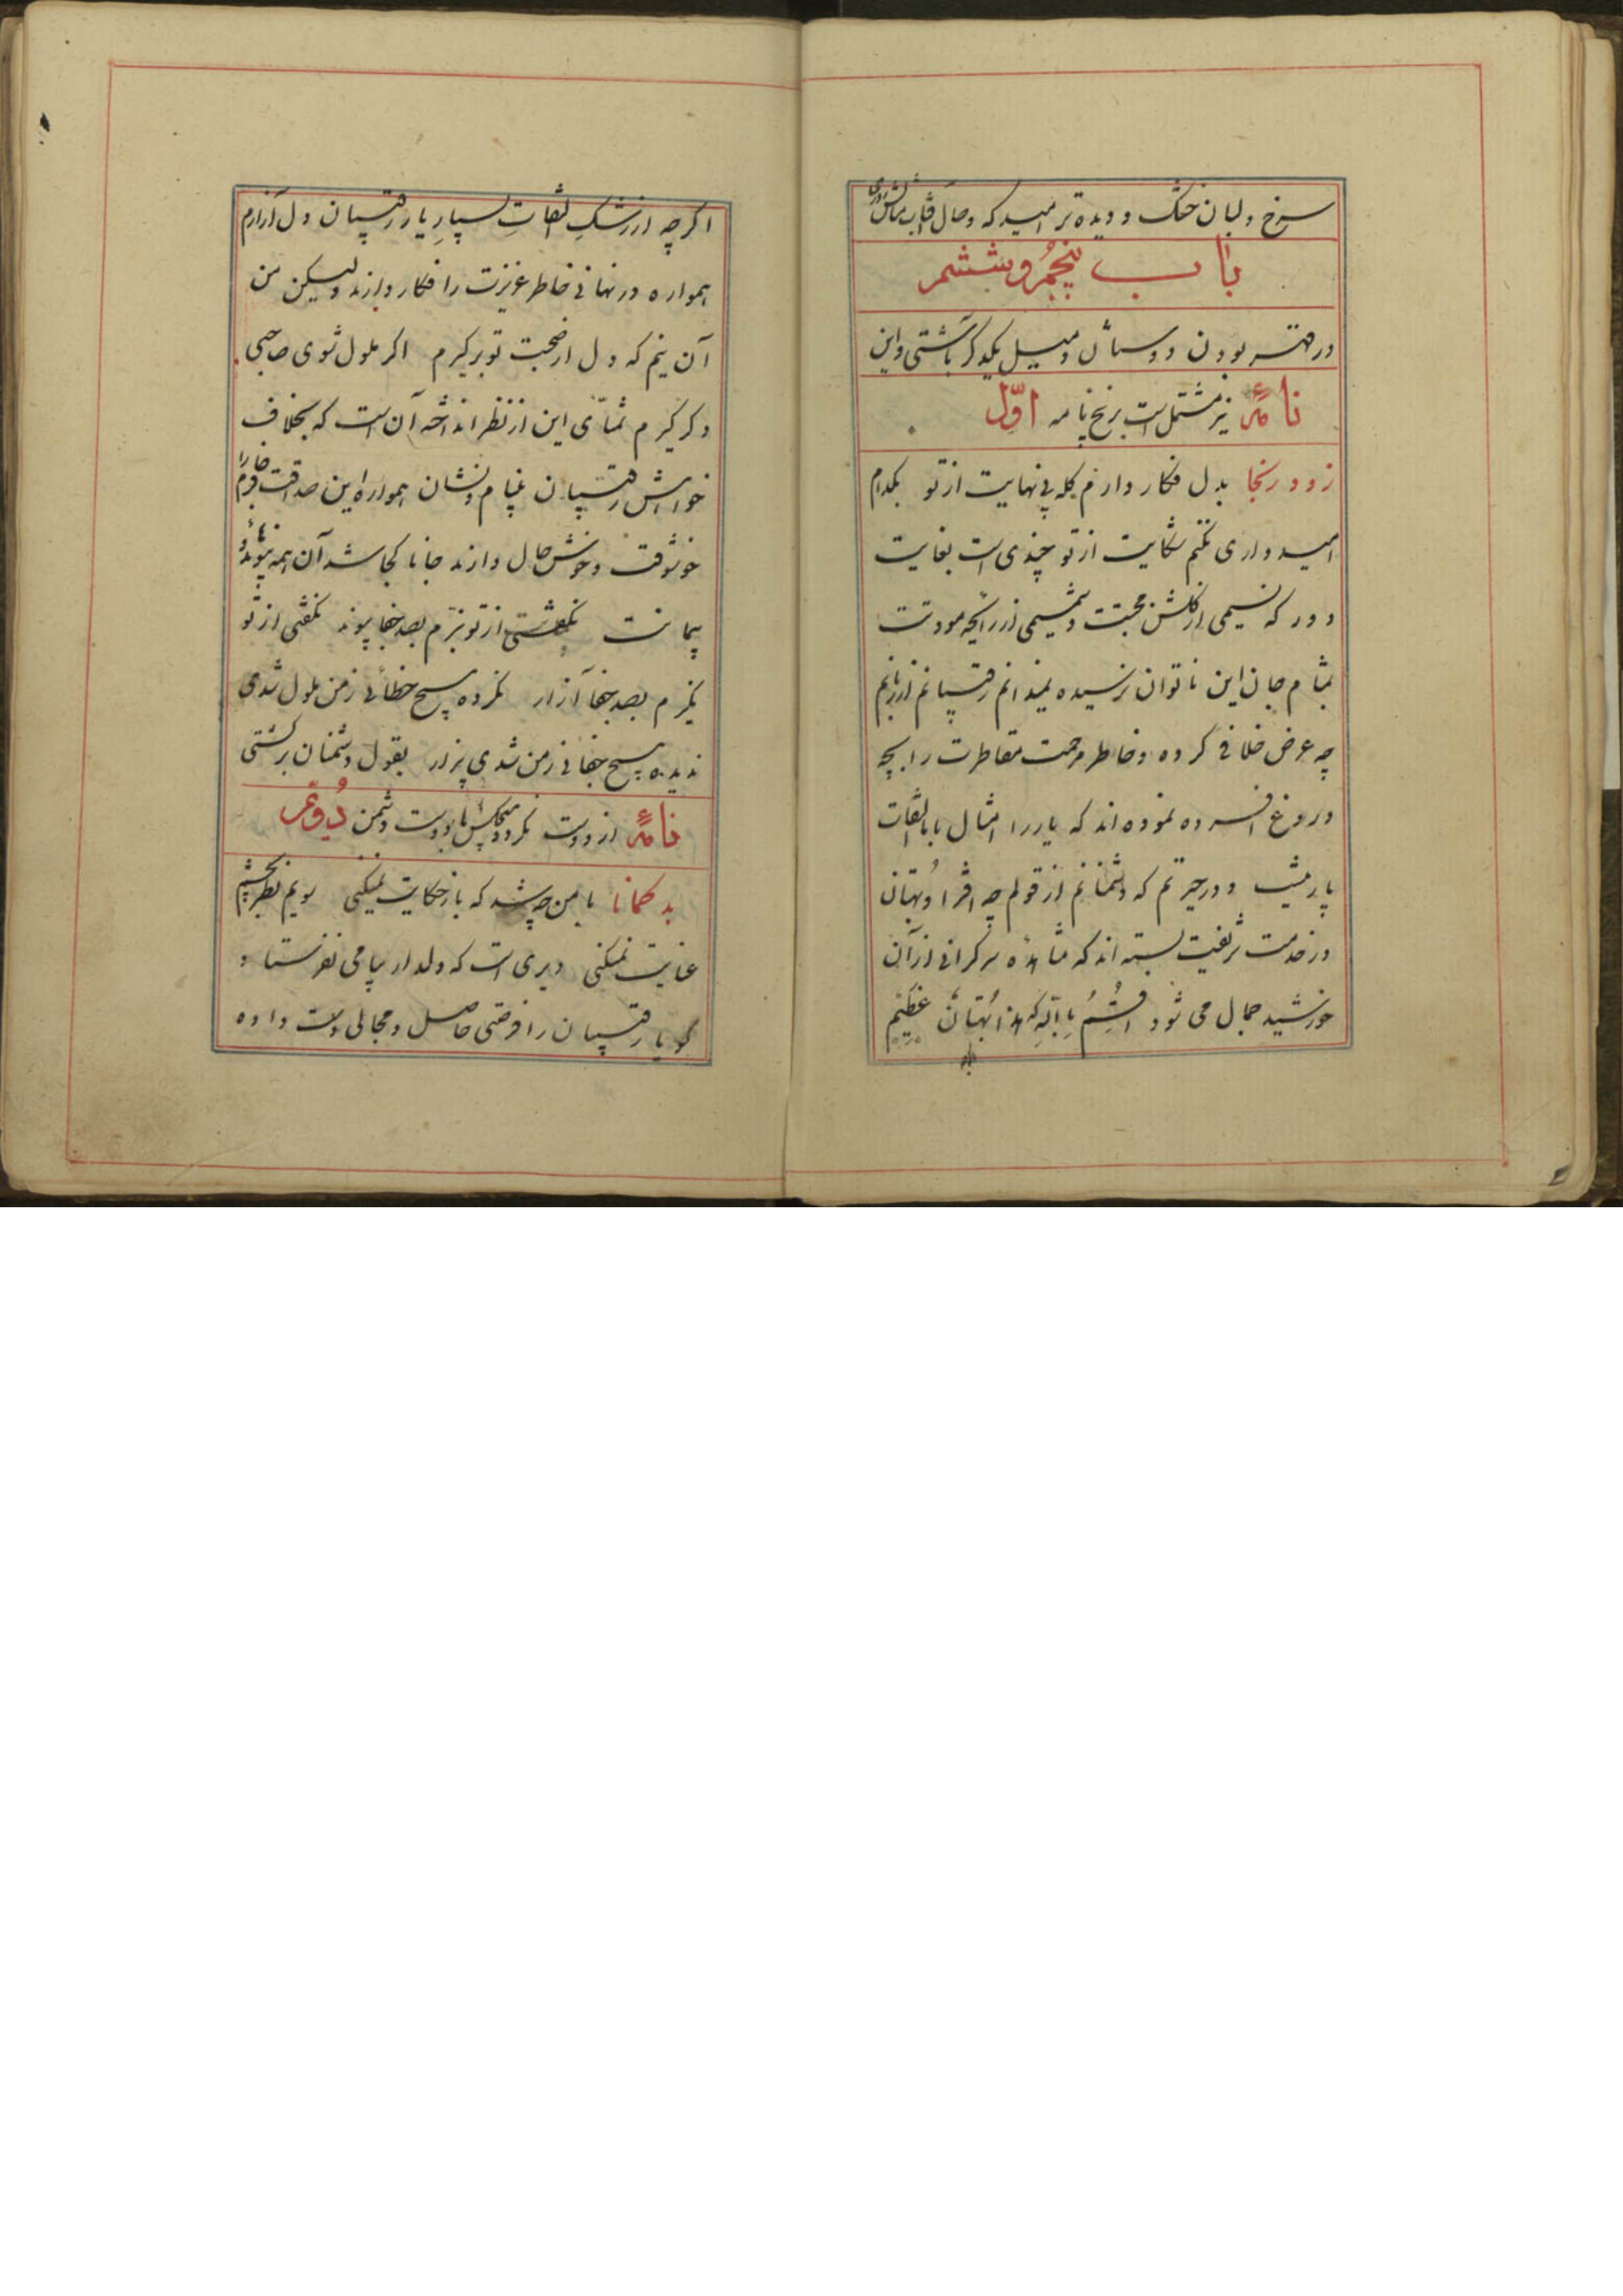 سرخ و لبان خشک و دیده تر امید که وصال آفتاب مثالش
باب پنجم و ششم
در قهر بودن دوستان و میل یکدیگر به آشتی و این
نامهٔ نیز مشتمل است بر پنج نامه اوّل
زود رنجا بدل فکار دارم گله بی نهایت از تو بکدام
امیدواری نکنم شکایت از تو چندی است بغایت
دور که نسیمی از گلشن محبتت و شمیمی از رایحه مودتت
بمشام جان این ناتوان نرسیده نمیدانم رقیبانم از زبانم
چه عرض خلافی کرده و خاطر مرحمت مقاطرت را بچه
دروغ افسرده نموده اند که یار را امثال با التفات
پار نیست و در حیرتم که دشمنانم از قولم چه افترا و بهتان
در خدمت شریفت بسته اند که مشاهده سرگرانی از آن
خورشید جمال می شود اقسم بالله که هذا بهتان عظیم
اگرچه از رشک التفات بسیار یار رقیبان دل آزارم
همواره در نهانی خاطر عزیزت را فکار دارند ولیکن من
آن نیم که دل از صحبت تو برگیرم اگر ملول شوی صاحبی
دگر گیرم تمنّای این از نظر انداخته آن است که بخلاف
خواهش رقیبان به پیام و نشان همواره این صداقت فرجام را
خوشوقت و خوش حال دارند جانا کجا شد آن همه پیوند و
پیمانت نگفتی از تو نبرم بصد جفا پیوند نگفتی از تو
نگیرم بصد جفا آزار نکرده هیچ خطائی ز من ملول شدی
ندیده هیچ جفائی ز من شدی بیزار بقول دشمنان برگشتی
نامهٔ از دوست نکرد هیچکس با دوست دشمن دُوّم
بد گمانا با من چه شد که باز حکایت نمیکنی سویم نظر بچشم
عنایت نمیکنی دیری است که دلدار پیامی نفرستاد
گویا رقیبان را فرصتی حاصل و مجالی دست داده